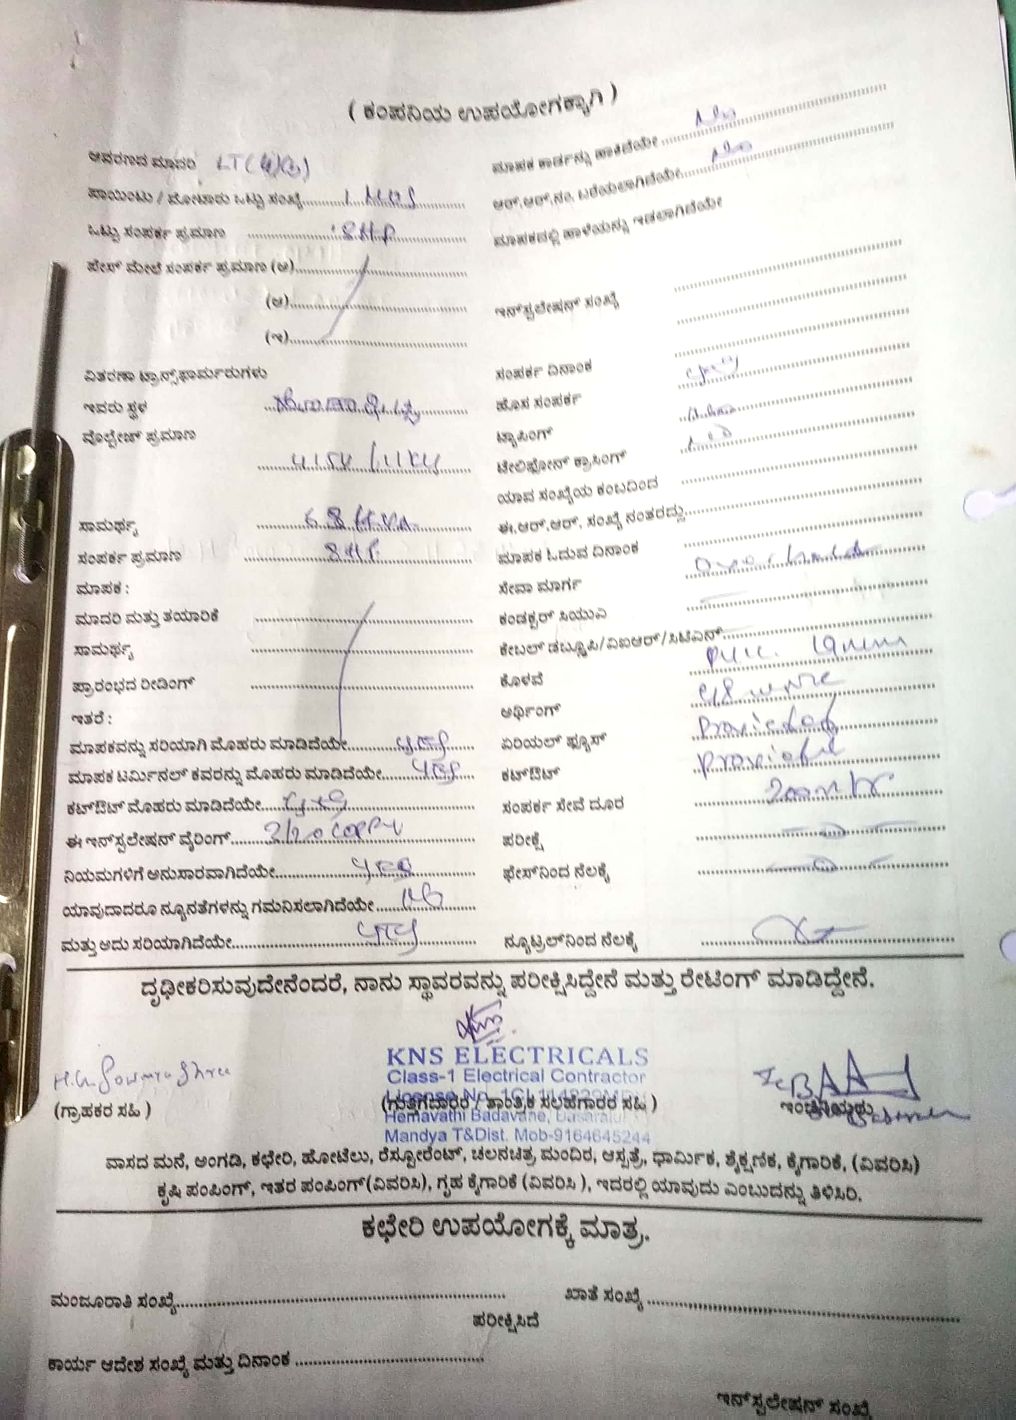 ( ಕಂಪನಿಯ ಉಪಯೋಗಕ್ಕಾಗಿ )
ಆವರಣದ ಮಾದರಿ LT(4)(a)
ಮಾಪಕ ಕಾರ್ಡನ್ನು ಹಾಕಿದೆಯೇ No
ಪಾಯಿಂಟು / ಮೋಟಾರು ಒಟ್ಟು ಸಂಖ್ಯೆ 1 NOS
ಆರ್.ಆರ್.ನಂ. ಬರೆಯಲಾಗಿದೆಯೇ No
ಒಟ್ಟು ಸಂಪರ್ಕ ಪ್ರಮಾಣ 8HP
ಮಾಪಕದಲ್ಲಿ ಹಾಳೆಯನ್ನು ಇಡಲಾಗಿದೆಯೇ
ಫೇಸ್ ಮೇಲೆ ಸಂಪರ್ಕ ಪ್ರಮಾಣ (ಅ)
(ಆ)
ಇನ್‌ಸ್ಟಲೇಷನ್ ಸಂಖ್ಯೆ
(ಇ)
ವಿತರಣಾ ಟ್ರಾನ್ಸ್‌ಫಾರ್ಮರುಗಳು
ಸಂಪರ್ಕ ದಿನಾಂಕ
ಇವರು ಸ್ಥಳ
ಹೊಸ ಸಂಪರ್ಕ
ವೊಲ್ಟೇಜ್ ಪ್ರಮಾಣ
ಟ್ಯಾಪಿಂಗ್
ಟೇಲಿಫೋನ್ ಕ್ರಾಸಿಂಗ್
ಯಾವ ಸಂಖ್ಯೆಯ ಕಂಬದಿಂದ
ಸಾಮರ್ಥ್ಯ
ಈ.ಆರ್.ಆರ್. ಸಂಖ್ಯೆ ನಂತರದ್ದು
ಸಂಪರ್ಕ ಪ್ರಮಾಣ 8HP.
ಮಾಪಕ ಓದುವ ದಿನಾಂಕ
ಮಾಪಕ :
ಸೇವಾ ಮಾರ್ಗ
ಮಾದರಿ ಮತ್ತು ತಯಾರಿಕೆ
ಕಂಡಕ್ಟರ್ ಸಿಯುವಿ
ಸಾಮರ್ಥ್ಯ
ಕೇಬಲ್ ಡಬ್ಲ್ಯೂಪಿ/ವಿಐಆರ್/ಸಿಟಿಎಸ್
ಪ್ರಾರಂಭದ ರೀಡಿಂಗ್
ಕೊಳವೆ PVC 19mm
ಇತರೆ :
ಅರ್ಥಿಂಗ್ 98 wire
ಮಾಪಕವನ್ನು ಸರಿಯಾಗಿ ಮೊಹರು ಮಾಡಿದೆಯೇ YES
ಏರಿಯಲ್ ಫ್ಯೂಸ್ Provided
ಮಾಪಕ ಟರ್ಮಿನಲ್ ಕವರನ್ನು ಮೊಹರು ಮಾಡಿದೆಯೇ YES
ಕಟ್‌ಔಟ್ Provided
ಕಟ್‌ಔಟ್ ಮೊಹರು ಮಾಡಿದೆಯೇ YES
ಸಂಪರ್ಕ ಸೇವೆ ದೂರ
ಈ ಇನ್‌ಸ್ಟಲೇಷನ್ ವೈರಿಂಗ್ 3/20 COPPY
ಪರೀಕ್ಷೆ
ನಿಯಮಗಳಿಗೆ ಅನುಸಾರವಾಗಿದೆಯೇ YES
ಫೇಸ್‌ನಿಂದ ನೆಲಕ್ಕೆ
ಯಾವುದಾದರೂ ನ್ಯೂನತೆಗಳನ್ನು ಗಮನಿಸಲಾಗಿದೆಯೇ NO
ಮತ್ತು ಅದು ಸರಿಯಾಗಿದೆಯೇ YES
ನ್ಯೂಟ್ರಲ್‌ನಿಂದ ನೆಲಕ್ಕೆ
ದೃಢೀಕರಿಸುವುದೇನೆಂದರೆ, ನಾನು ಸ್ಥಾವರವನ್ನು ಪರೀಕ್ಷಿಸಿದ್ದೇನೆ ಮತ್ತು ರೇಟಿಂಗ್ ಮಾಡಿದ್ದೇನೆ.
KNS ELECTRICALS
Class-1 Electrical Contractor
(ಗ್ರಾಹಕರ ಸಹಿ )
(ಗುತ್ತಿಗೆದಾರರ / ತಾಂತ್ರಿಕ ಸಲಹಗಾರರ ಸಹಿ )
ಇಂಜಿನಿಯರು
Hemavathi Badavane, Basaralu
Mandya T&Dist. Mob-9164645244
ವಾಸದ ಮನೆ, ಅಂಗಡಿ, ಕಛೇರಿ, ಹೋಟೆಲು, ರೆಸ್ಟೋರೆಂಟ್, ಚಲನಚಿತ್ರ ಮಂದಿರ, ಆಸ್ಪತ್ರೆ, ಧಾರ್ಮಿಕ, ಶೈಕ್ಷಣಿಕ, ಕೈಗಾರಿಕೆ, (ವಿವರಿಸಿ)
ಕೃಷಿ ಪಂಪಿಂಗ್, ಇತರ ಪಂಪಿಂಗ್(ವಿವರಿಸಿ), ಗೃಹ ಕೈಗಾರಿಕೆ (ವಿವರಿಸಿ ), ಇದರಲ್ಲಿ ಯಾವುದು ಎಂಬುದನ್ನು ತಿಳಿಸಿರಿ.
ಕಛೇರಿ ಉಪಯೋಗಕ್ಕೆ ಮಾತ್ರ.
ಮಂಜೂರಾತಿ ಸಂಖ್ಯೆ
ಖಾತೆ ಸಂಖ್ಯೆ
ಪರೀಕ್ಷಿಸಿದೆ
ಕಾರ್ಯ ಆದೇಶ ಸಂಖ್ಯೆ ಮತ್ತು ದಿನಾಂಕ
ಇನ್‌ಸ್ಟಲೇಷನ್ ಸಂಖ್ಯೆ